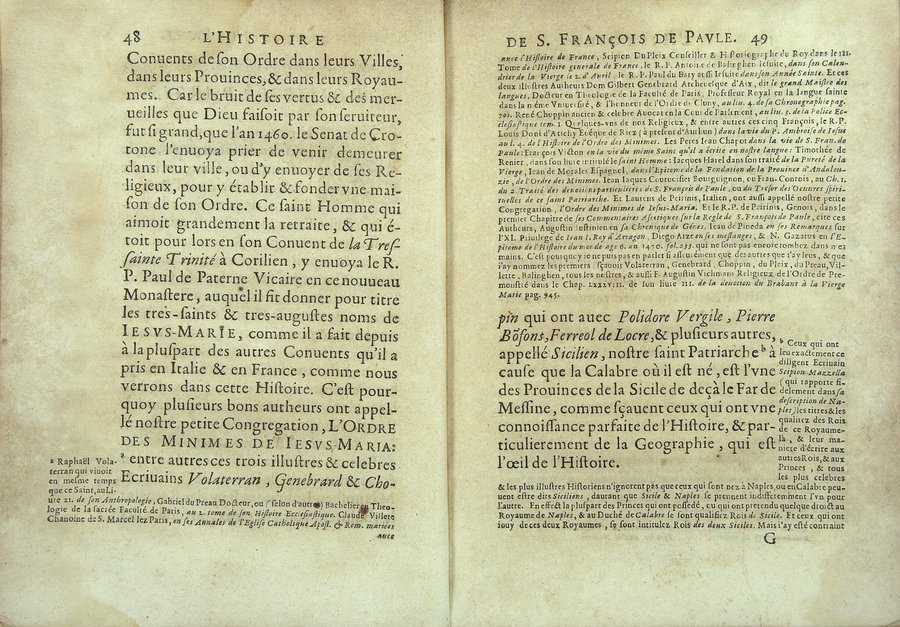 48 L'HISTOIRE
Conuents de son Ordre dans leurs Villes,
dans leurs Prouinces, & dans leurs Royau-
mes. Car le bruit de ses vertus & des mer-
ueilles que Dieu faisoit par son seruiteur,
fut si grand, que l'an 1460. le Senat de Cro-
tone l'enuoya prier de venir demeurer
dans leur ville, ou d'y enuoyer de ses Re-
ligieux, pour y établir & fonder vne mai-
son de son Ordre. Ce saint Homme qui
aimoit grandement la retraite, & qui é-
toit pour lors en son Conuent de la Tres-
sainte Trinité à Corilien, y enuoya le R.
P. Paul de Paterne Vicaire en ce nouueau
Monastere, auquel il fit donner pour titre
les trés-saints & tres-augustes noms de
IESVS-MARIE, comme il a fait depuis
à la pluspart des autres Conuents qu'il a
pris en Italie & en France, comme nous
verrons dans cette Histoire. C'est pour-
quoy plusieurs bons autheurs ont appel-
lé nostre petite Congregation, L'ORDRE
DES MINIMES DE IESVS-MARIA:
a entre autres ces trois illustres & celebres
Ecriuains Volaterran, Genebrard & Cho-
a Raphaël Vola-
terran qui viuoit
en mesme temps
que ce Saint, au Li-
ure 21. de son Anthropologie, Gabriel du Preau Docteur, ou (selon d'autres) Bachelier en Theo-
logie de la sacrée Faculté de Paris, au 2. tome de son Histoire Ecclesiastique. Claude Villete
Chanoine de S. Marcel lez Paris, en ses Annales de l'Eglise Catholique Apost. & Rom. mariées
auec
DE S. FRANÇOIS DE PAVLE. 49
auec l'Histoire de France, Scipion Du Pleix Conseiller & Historiographe du Roy dans le III.
Tome de l'Histoire generale de France, le R. P. Antoine de Balinghen Iesuite, dans son Calen-
drier de la Vierge le 2. d'Auril, le R. P. Paul du Barry aussi Iesuite dans son Année Sainte. Et ces
deux illustres Autheurs Dom Gilbert Genebrard Archeuesque d'Aix, dit le grand Maistre des
langues, Docteur en Theologie de la Faculté de Paris, Professeur Royal en la langue sainte
dans la méme Vniuersité, & l'honneur de l'Ordre de Cluny, au liu. 4. de sa Chronographie pag.
702. René Choppin ancien & celebre Aduocat en la Cour de Parlement, au liu. 3. de la Police Ec-
clesiastique tom. 1. Quelques-vns de nos Religieux, & entre autres ces cinq François, le R. P.
Louis Doni d'Attichy Euéque de Riez (à present d'Authun) dans la vie du P. Ambroise de Iesus
au l. 4. de l'Histoire des Minimes. Les Peres Iean Chapot dans la vie de S. Fran. de
Paule: François Victon en la vie du mime Saint qu'il a écrite en nostre langue: Timothée de
Renier, dans son liure intitulé le saint Homme: Iacques Harel dans son traité de la Pureté de la
Vierge, Iean de Morales Espagnol, dans l'Epitome de la Fondation de la Prouince d'Andalou-
zie, de l'Ordre des Minimes. Iean Iaques Courtuisier Bourguignon, ou Fran-Contois, au Ch. 1.
du 2. Traité des deuotions particulieres de S. François de Paule, ou du Tresor des Oeuures spiri-
tuelles de ce saint Patriarche. Et Laurens de Peirinis, Italien, ont aussi appellé nostre petite
Congregation, l'Ordre des Minimes de Iesus-Maria. Et le R. P. de Peirinis, Genois, dans le
premier Chapitre de ses Commentaires Ascetiques sur la Regle de S. François de Paule, cite ces
Autheurs, Augustin Iustinien en sa Chronique de Génes. Iean de Pineda en ses Remarques sur
l'XI. Priuilege de Iean I. Roy d'Arragon. Diego Arze en ses meslanges, & N. Gazæus en l'E-
pitome de l'Histoire du monde age 6. an. 1470. fol. 233. qui ne sont pas encore tombez dans mes
mains. C'est pourquoy ie ne puis pas en parler si asseurément que des autres que i'ay leus, & que
i'ay nommez les premiers; sçauoir Volaterran, Genebrard, Choppin, du Pleix, du Preau, Vil-
lette, Balinghen, tous les nostres, & aussi F. Augustin Vichmans Religieux de l'Ordre de Pre-
monstré dans le Chap. LXXXVIII. de son liure III. de la deuotion du Brabant à la Vierge
Marie pag. 945.
pin qui ont auec Polidore Vergile, Pierre
Bõfons, Ferreol de Locre, & plusieurs autres,
appellé Sicilien, nostre saint Patriarche b à
cause que la Calabre où il est né, est l'vne
des Prouinces de la Sicile de deçà le Far de
Messine, comme sçauent ceux qui ont vne
connoissance parfaite de l'Histoire, & par-
ticulierement de la Geographie, qui est
l'œil de l'Histoire.
b Ceux qui ont
leu exactement ce
diligent Ecriuain
Scipion Mazzella
(qui rapporte fi-
delement dans sa
description de Na-
ples) les titres & les
qualitez des Rois
de ce Royaume-
là, & leur ma-
niere d'écrire aux
autres Rois, & aux
Princes, & tous
les plus celebres
& les plus illustres Historiens n'ignorent pas que ceux qui sont nez à Naples, ou en Calabre peu-
uent estre dits Siciliens, dautant que Sicile & Naples se prennent indifferemment l'vn pour
l'autre. En effect la pluspart des Princes qui ont possedé, ou qui ont pretendu quelque droict au
Royaume de Naples, & au Duché de Calabre se sont qualifiez Rois di Sicile. Et ceux qui ont
iouy de ces deux Royaumes, se sont intitulez Rois des deux Siciles. Mais i'ay esté contraint
G